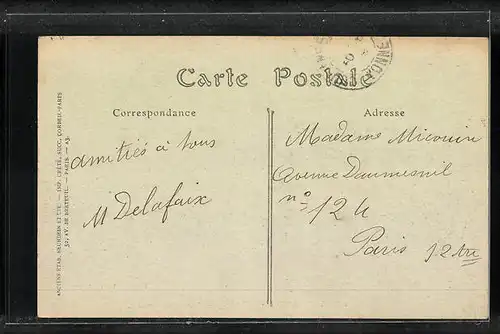 Carte Postale
Correspondance
Adresse
amitiés à tous
M Delafaix
Madame Micouin
Avenue Daumesnil
nº 124
Paris 12
ANCIENS ETAB. NEURDEIN ET CIE. — IMP. CRÉTÉ, SUCC. CORBEIL-PARIS
52, AV. DE BRETEUIL — PARIS. — A3.